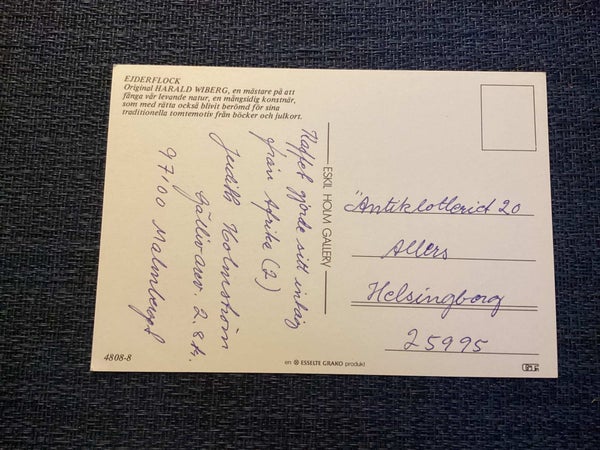 EJDERFLOCK
Original HARALD WIBERG, en mästare på att
fånga vår levande natur, en mångsidig konstnär,
som med rätta också blivit berömd för sina
traditionella tomtemotiv från böcker och julkort.
Kaffet gjorde sitt intåg
från Afrika (2)
Judith Holmström
97100 Malmberget
ESKIL HOLM GALLERY
"Antiklotteriet 20
Allers
Helsingborg
25995
4808-8
en ® ESSELTE GRAKO produkt